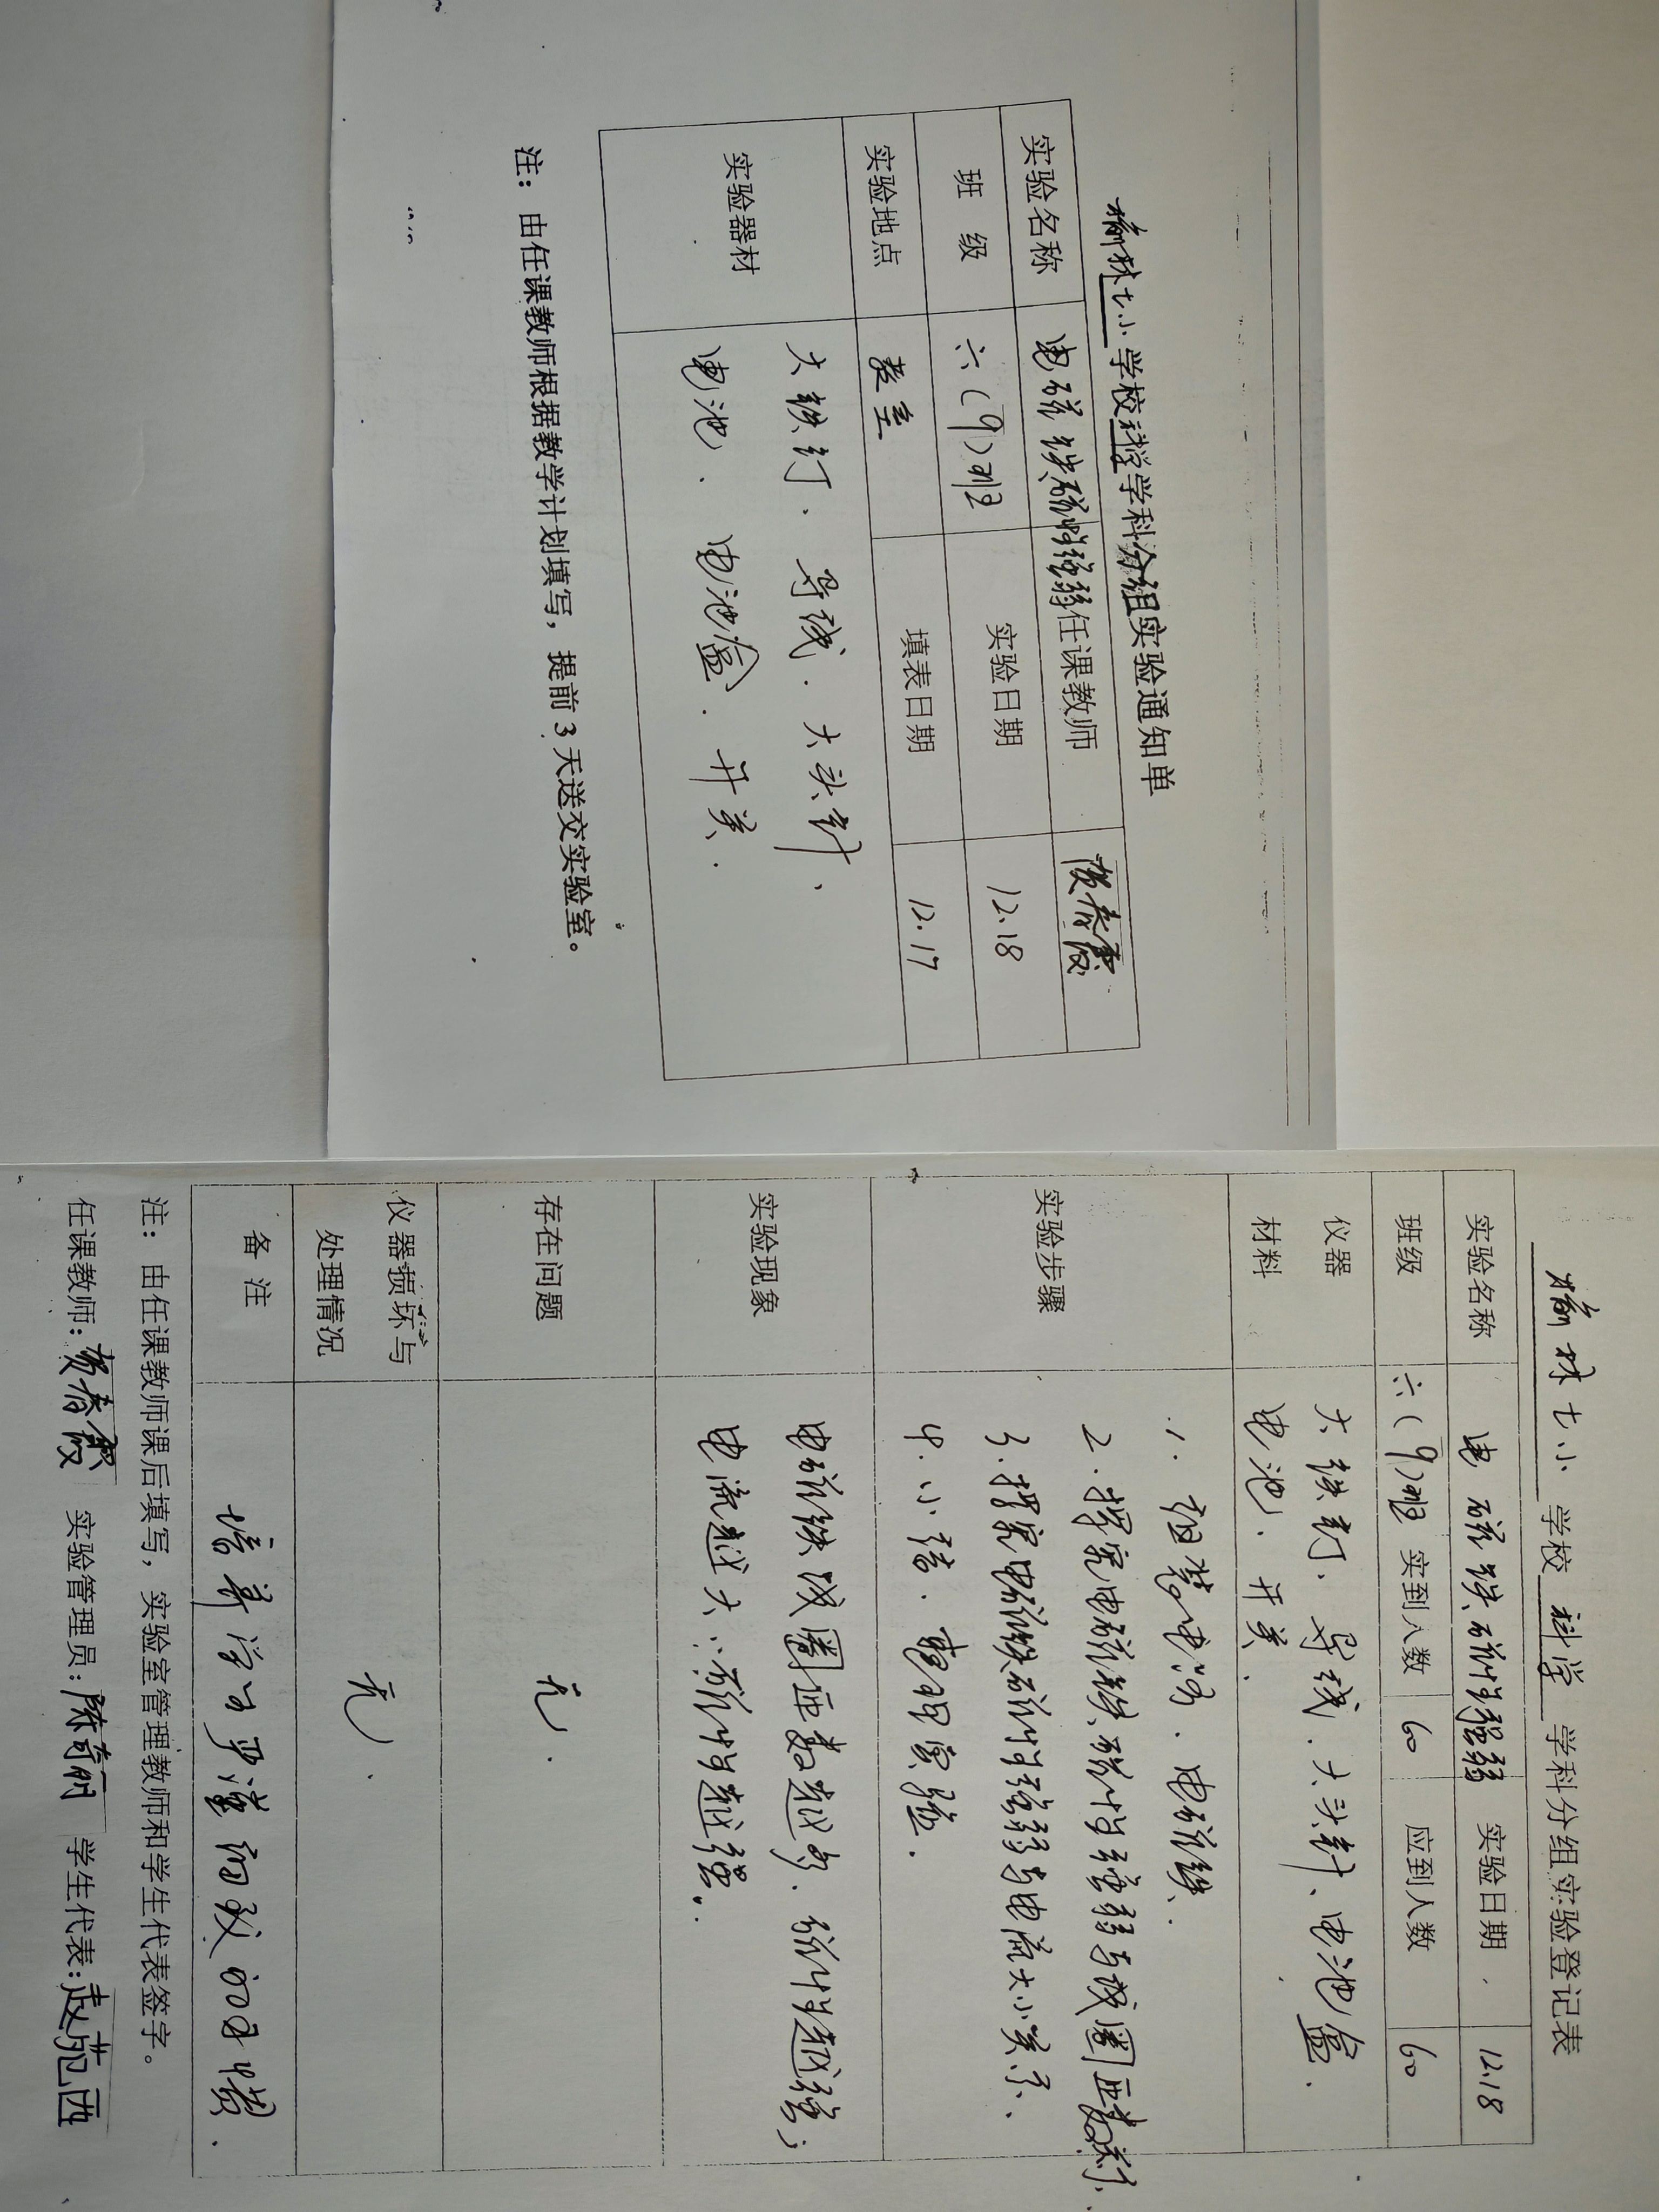 榆林七小学校科学学科分组实验通知单
实验名称 电磁铁磁性强弱 任课教师 贺春霞
班 级 六(9)班 实验日期 12.18
实验地点 教室 填表日期 12.17
实验器材 大铁钉、导线、大头针、
电池、电池盒、开关、
注：由任课教师根据教学计划填写，提前3天送交实验室。
榆林七小 学校 科学 学科分组实验登记表
实验名称 电磁铁磁性强弱 实验日期 12.18
班级 六(9)班 实到人数 60 应到人数 60
仪器
材料
大铁钉、导线、大头针、电池盒、
电池、开关、
实验步骤
1. 组装电路、电磁铁、
2. 探究电磁铁磁性强弱与线圈匝数关系、
3. 探究电磁铁磁性强弱与电流大小关系、
4. 小结、整理实验、
实验现象
电磁铁线圈匝数越多、磁性越强；
电流越大、磁性越强。
存在问题 无、
仪器损坏与
处理情况
无、
备 注 培养学生严谨细致的习惯、
注：由任课教师课后填写，实验室管理教师和学生代表签字。
任课教师：贺春霞 实验管理员：陈奇丽 学生代表：赵苑西